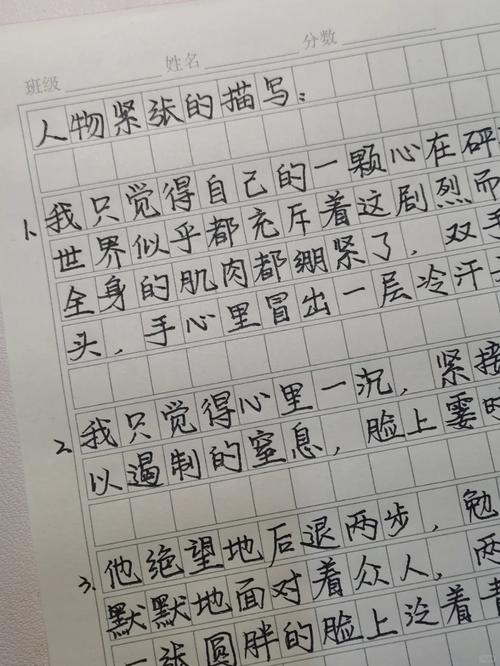 班级 姓名 分数
人物紧张的描写：
1. 我只觉得自己的一颗心在砰
世界似乎都充斥着这剧烈而
全身的肌肉都绷紧了，双手
头，手心里冒出一层冷汗
2. 我只觉得心里一沉，紧接
以遏制的窒息，脸上霎时
3. 他绝望地后退两步，勉
默默地面对着众人，两
一张圆胖的脸上泛着